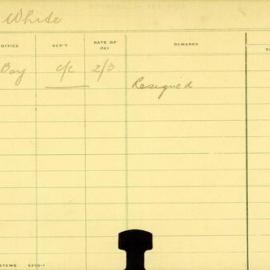 White
OFFICE DEP'T DATE OF PAY REMARKS
Bay c/c 2/3
Resigned